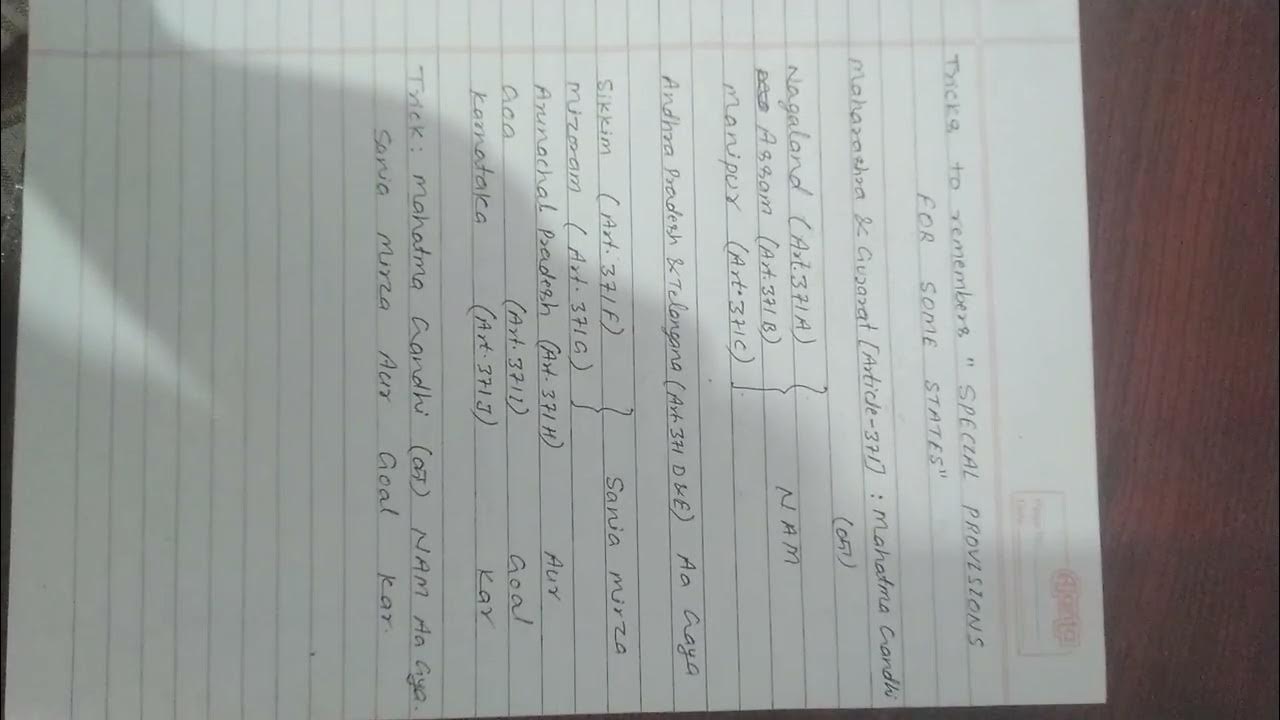 Ajanta
Tricks to remembers "SPECIAL PROVISIONS
FOR SOME STATES"
Maharashra & Gujarat [Article-371] : Mahatma Gandhi
(का)
Nagaland (Art.371A)
Assam (Art.371B) } NAM
Manipur (Art.371C)
Andhra Pradesh & Telangana (Art.371 D&E) Aa Gaya
Sikkim (Art.371F) } Sania Mirza
Mizoram (Art.371G)
Arunachal Pradesh (Art.371H) Aur
Goa (Art.371I) Goal
Karnataka (Art.371J) Kar
Trick: Mahatma Gandhi (का) NAM Aa Gya.
Sania Mirza Aur Goal Kar.